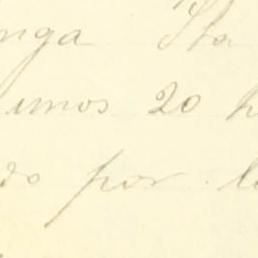 nga Sta
unos 20 h
do por l